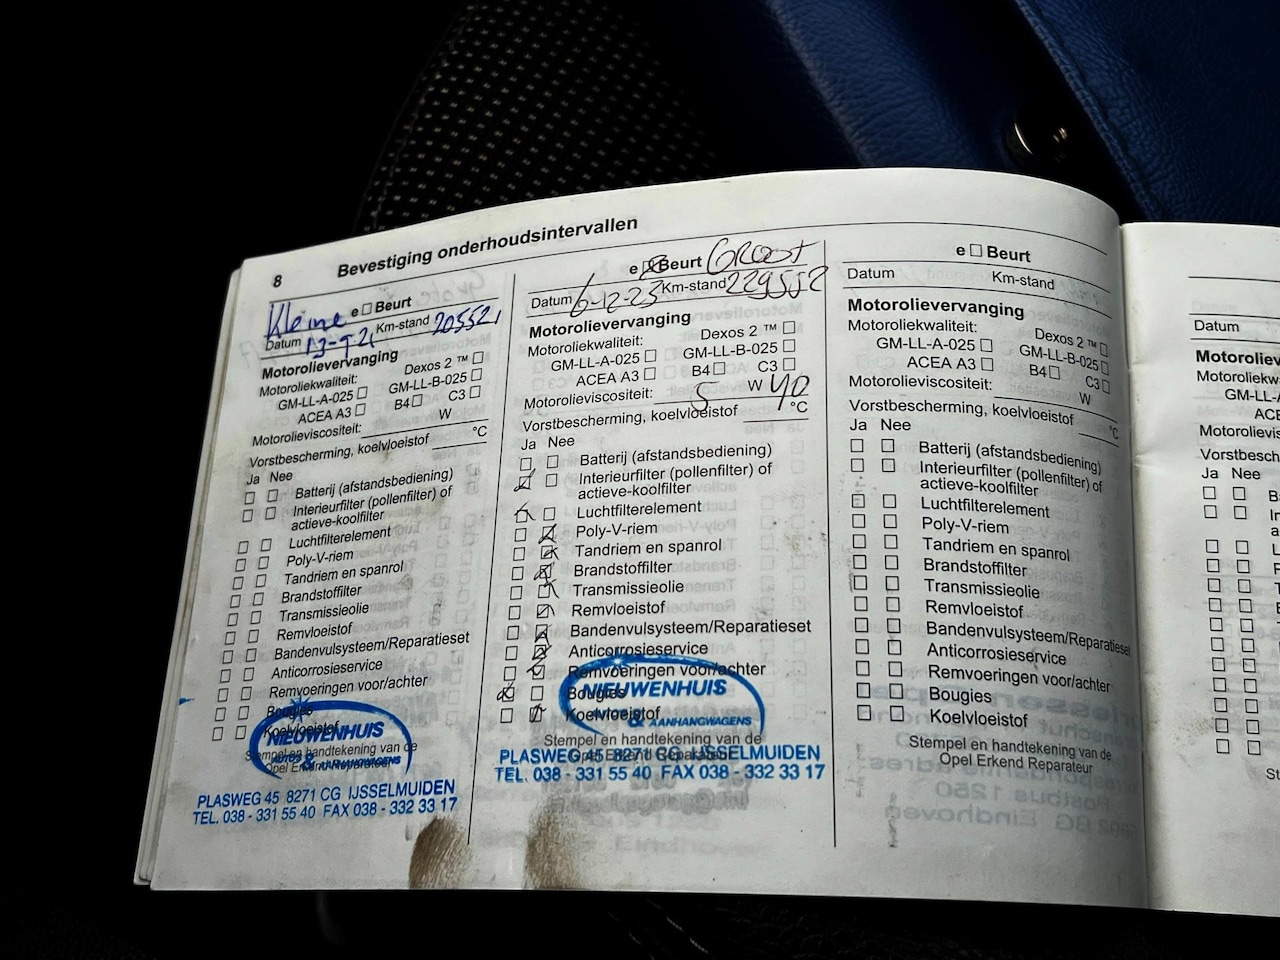 8 Bevestiging onderhoudsintervallen
Kleine e Beurt
Datum 13-9-21 Km-stand 205521
Motorolievervanging
Motoroliekwaliteit: Dexos 2 ™
GM-LL-A-025 GM-LL-B-025
ACEA A3 B4 C3
Motorolieviscositeit: W
Vorstbescherming, koelvloeistof °C
Ja Nee
Batterij (afstandsbediening)
Interieurfilter (pollenfilter) of
actieve-koolfilter
Luchtfilterelement
Poly-V-riem
Tandriem en spanrol
Brandstoffilter
Transmissieolie
Remvloeistof
Bandenvulsysteem/Reparatieset
Anticorrosieservice
Remvoeringen voor/achter
Bougies
Koelvloeistof
Stempel en handtekening van de
Opel Erkend Reparateur
NIEUWENHUIS
AUTO'S & AANHANGWAGENS
PLASWEG 45 8271 CG IJSSELMUIDEN
TEL. 038 - 331 55 40 FAX 038 - 332 33 17
e Beurt GROOT
Datum 6-12-23 Km-stand 229552
Motorolievervanging
Motoroliekwaliteit: Dexos 2 ™
GM-LL-A-025 GM-LL-B-025
ACEA A3 B4 C3
Motorolieviscositeit: 5 W 40
Vorstbescherming, koelvloeistof °C
Ja Nee
Batterij (afstandsbediening)
Interieurfilter (pollenfilter) of
actieve-koolfilter
Luchtfilterelement
Poly-V-riem
Tandriem en spanrol
Brandstoffilter
Transmissieolie
Remvloeistof
Bandenvulsysteem/Reparatieset
Anticorrosieservice
Remvoeringen voor/achter
Bougies
Koelvloeistof
Stempel en handtekening van de
Opel Erkend Reparateur
NIEUWENHUIS
& AANHANGWAGENS
PLASWEG 45 8271 CG IJSSELMUIDEN
TEL. 038 - 331 55 40 FAX 038 - 332 33 17
e Beurt
Datum Km-stand
Motorolievervanging
Motoroliekwaliteit: Dexos 2 ™
GM-LL-A-025 GM-LL-B-025
ACEA A3 B4 C3
Motorolieviscositeit: W
Vorstbescherming, koelvloeistof °C
Ja Nee
Batterij (afstandsbediening)
Interieurfilter (pollenfilter) of
actieve-koolfilter
Luchtfilterelement
Poly-V-riem
Tandriem en spanrol
Brandstoffilter
Transmissieolie
Remvloeistof
Bandenvulsysteem/Reparatieset
Anticorrosieservice
Remvoeringen voor/achter
Bougies
Koelvloeistof
Stempel en handtekening van de
Opel Erkend Reparateur
Datum
Ja Nee